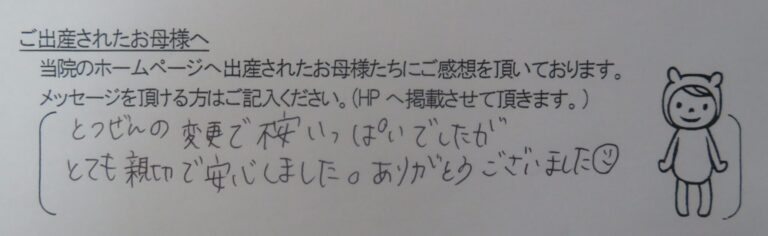 ご出産されたお母様へ
当院のホームページへ出産されたお母様たちにご感想を頂いております。
メッセージを頂ける方はご記入ください。(HP へ掲載させて頂きます。)
とつぜんの変更で不安いっぱいでしたが
とても親切で安心しました。ありがとうございました